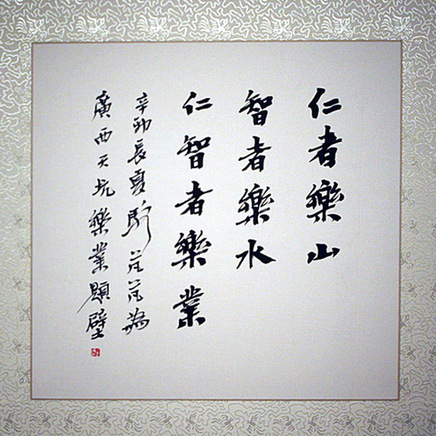 仁者樂山
智者樂水
仁智者樂業
辛卯長夏
廣西天坑樂業題壁